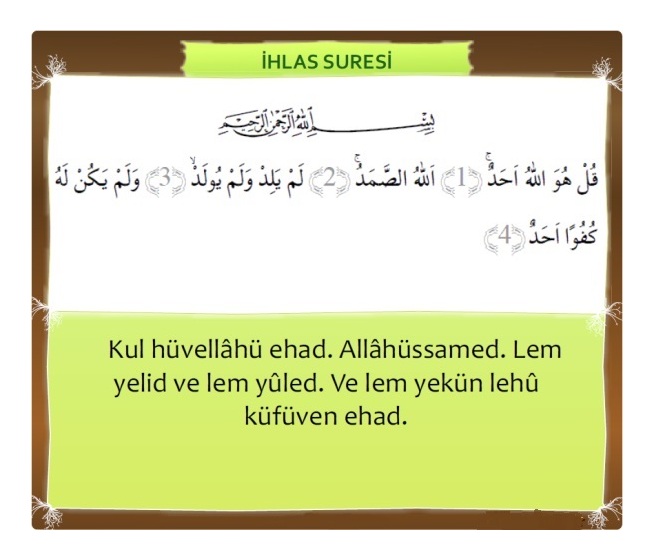 İHLAS SURESİ
بِسْمِ اللّٰهِ الرَّحْمٰنِ الرَّحِيمِ
قُلْ هُوَ اللّٰهُ اَحَدٌۚ ﴿1﴾ اَللّٰهُ الصَّمَدُۚ ﴿2﴾ لَمْ يَلِدْ وَلَمْ يُولَدْۙ ﴿3﴾ وَلَمْ يَكُنْ لَهُ
كُفُوًا اَحَدٌ ﴿4﴾
Kul hüvellâhü ehad. Allâhüssamed. Lem
yelid ve lem yûled. Ve lem yekün lehû
küfüven ehad.